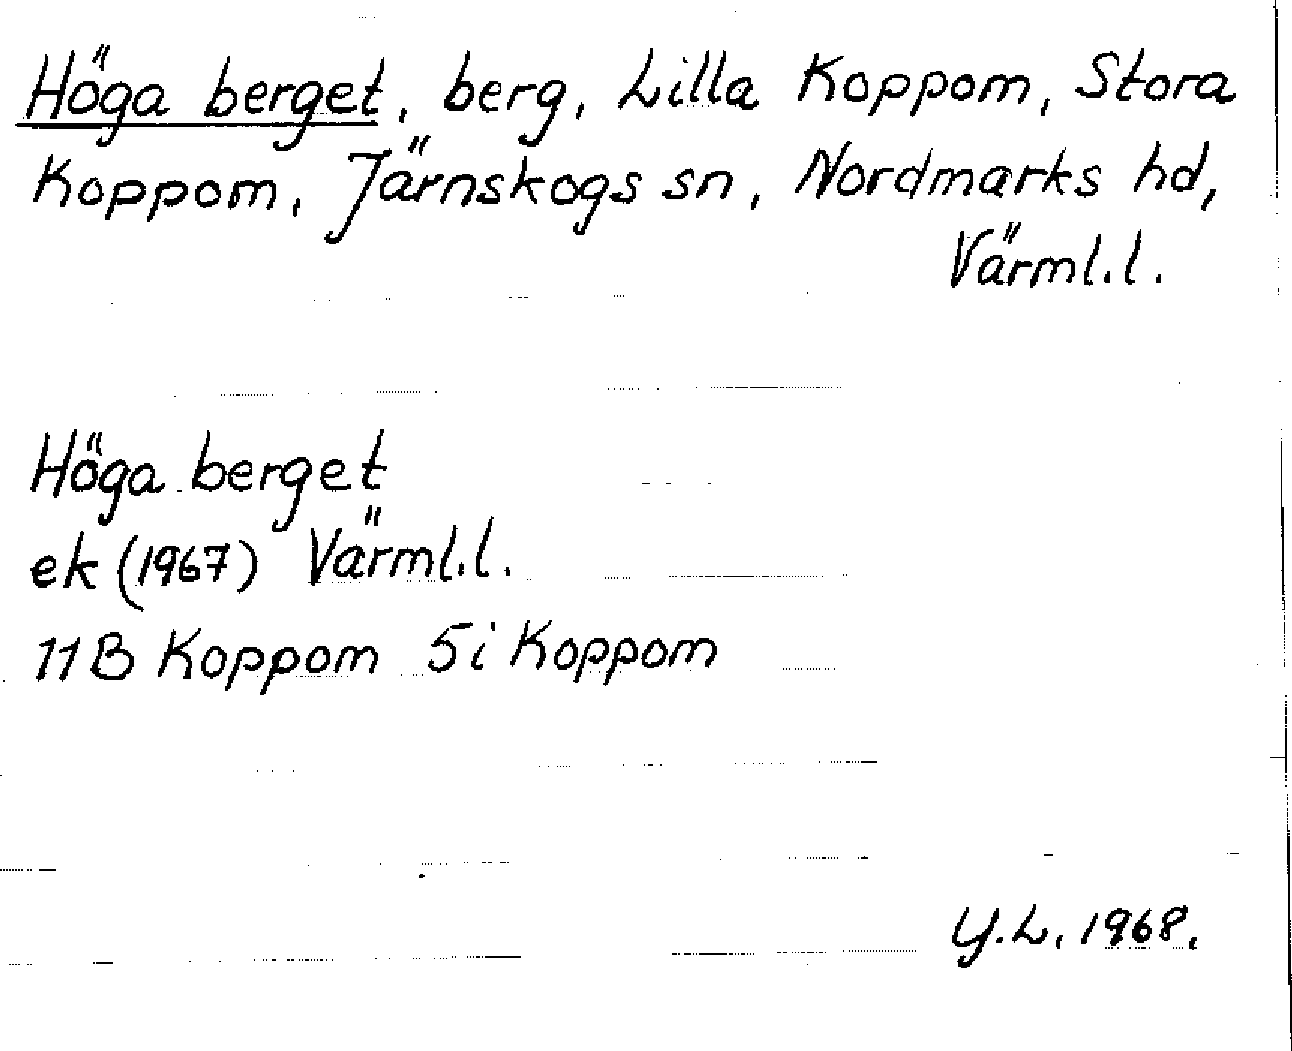 Höga berget, berg, Lilla Koppom, Stora
Koppom, Järnskogs sn, Nordmarks hd,
Värml.l.
Höga berget
ek (1967) Värml.l.
11B Koppom 5i Koppom
Y.L. 1968.